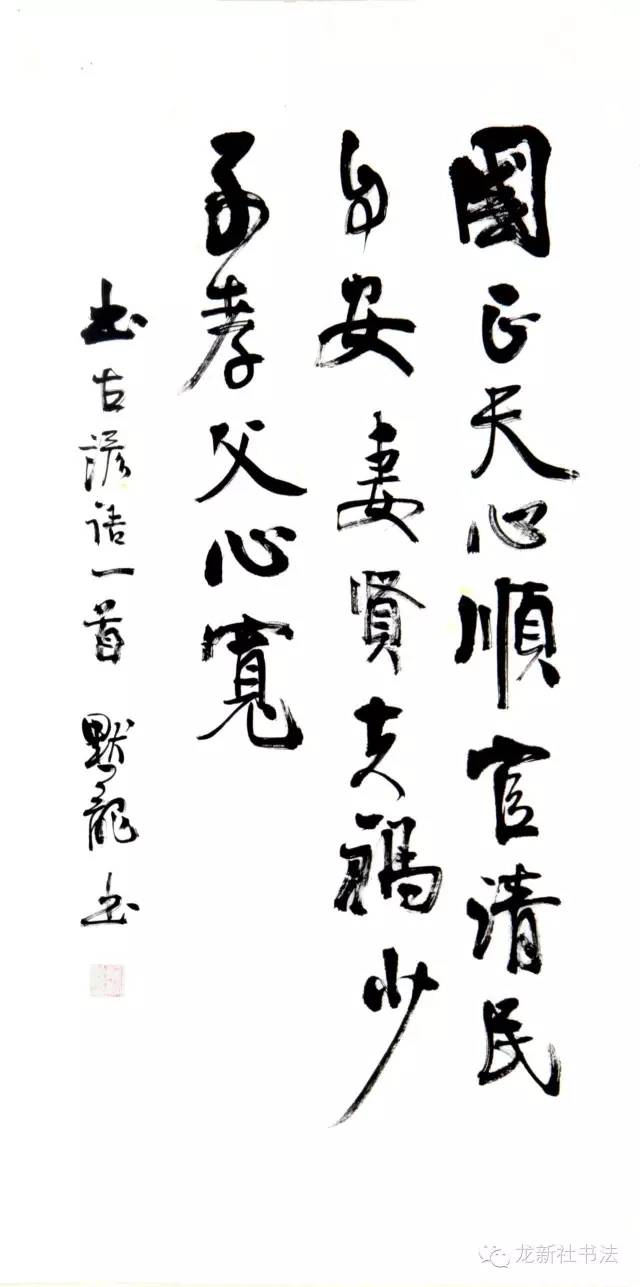 國正天心順官清民
自安妻賢夫禍少
子孝父心寬
书古諺语一首 默龍书
龙新社书法